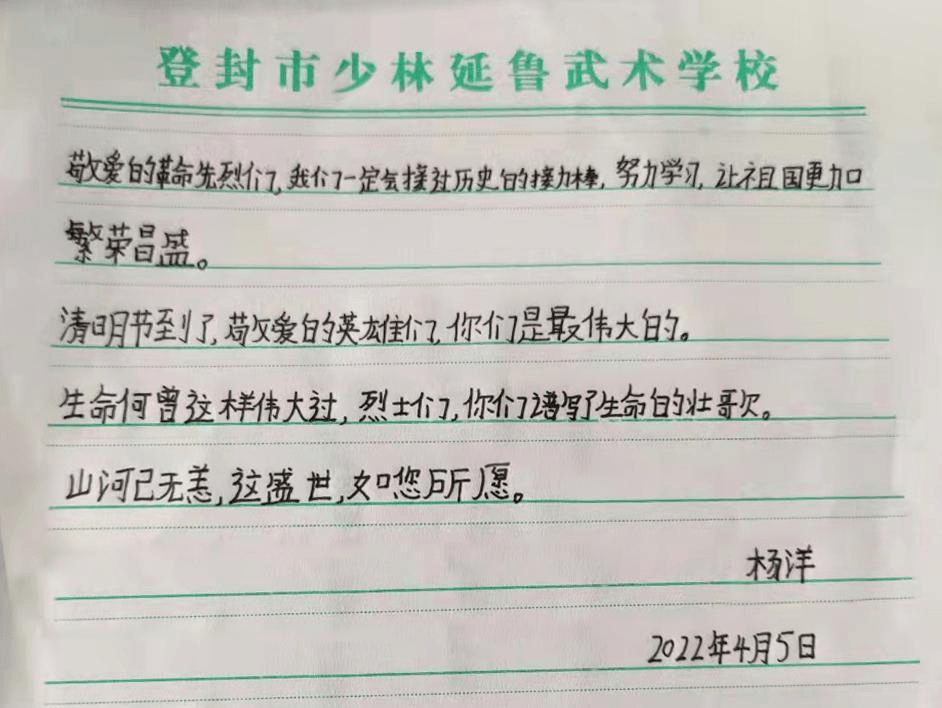 登封市少林延鲁武术学校
敬爱的革命先烈们,我们一定会接过历史的接力棒,努力学习,让祖国更加
繁荣昌盛。
清明节到了,敬爱的英雄们,你们是最伟大的。
生命何曾这样伟大过,烈士们,你们谱写了生命的壮歌。
山河已无恙,这盛世,如您所愿。
杨洋
2022年4月5日